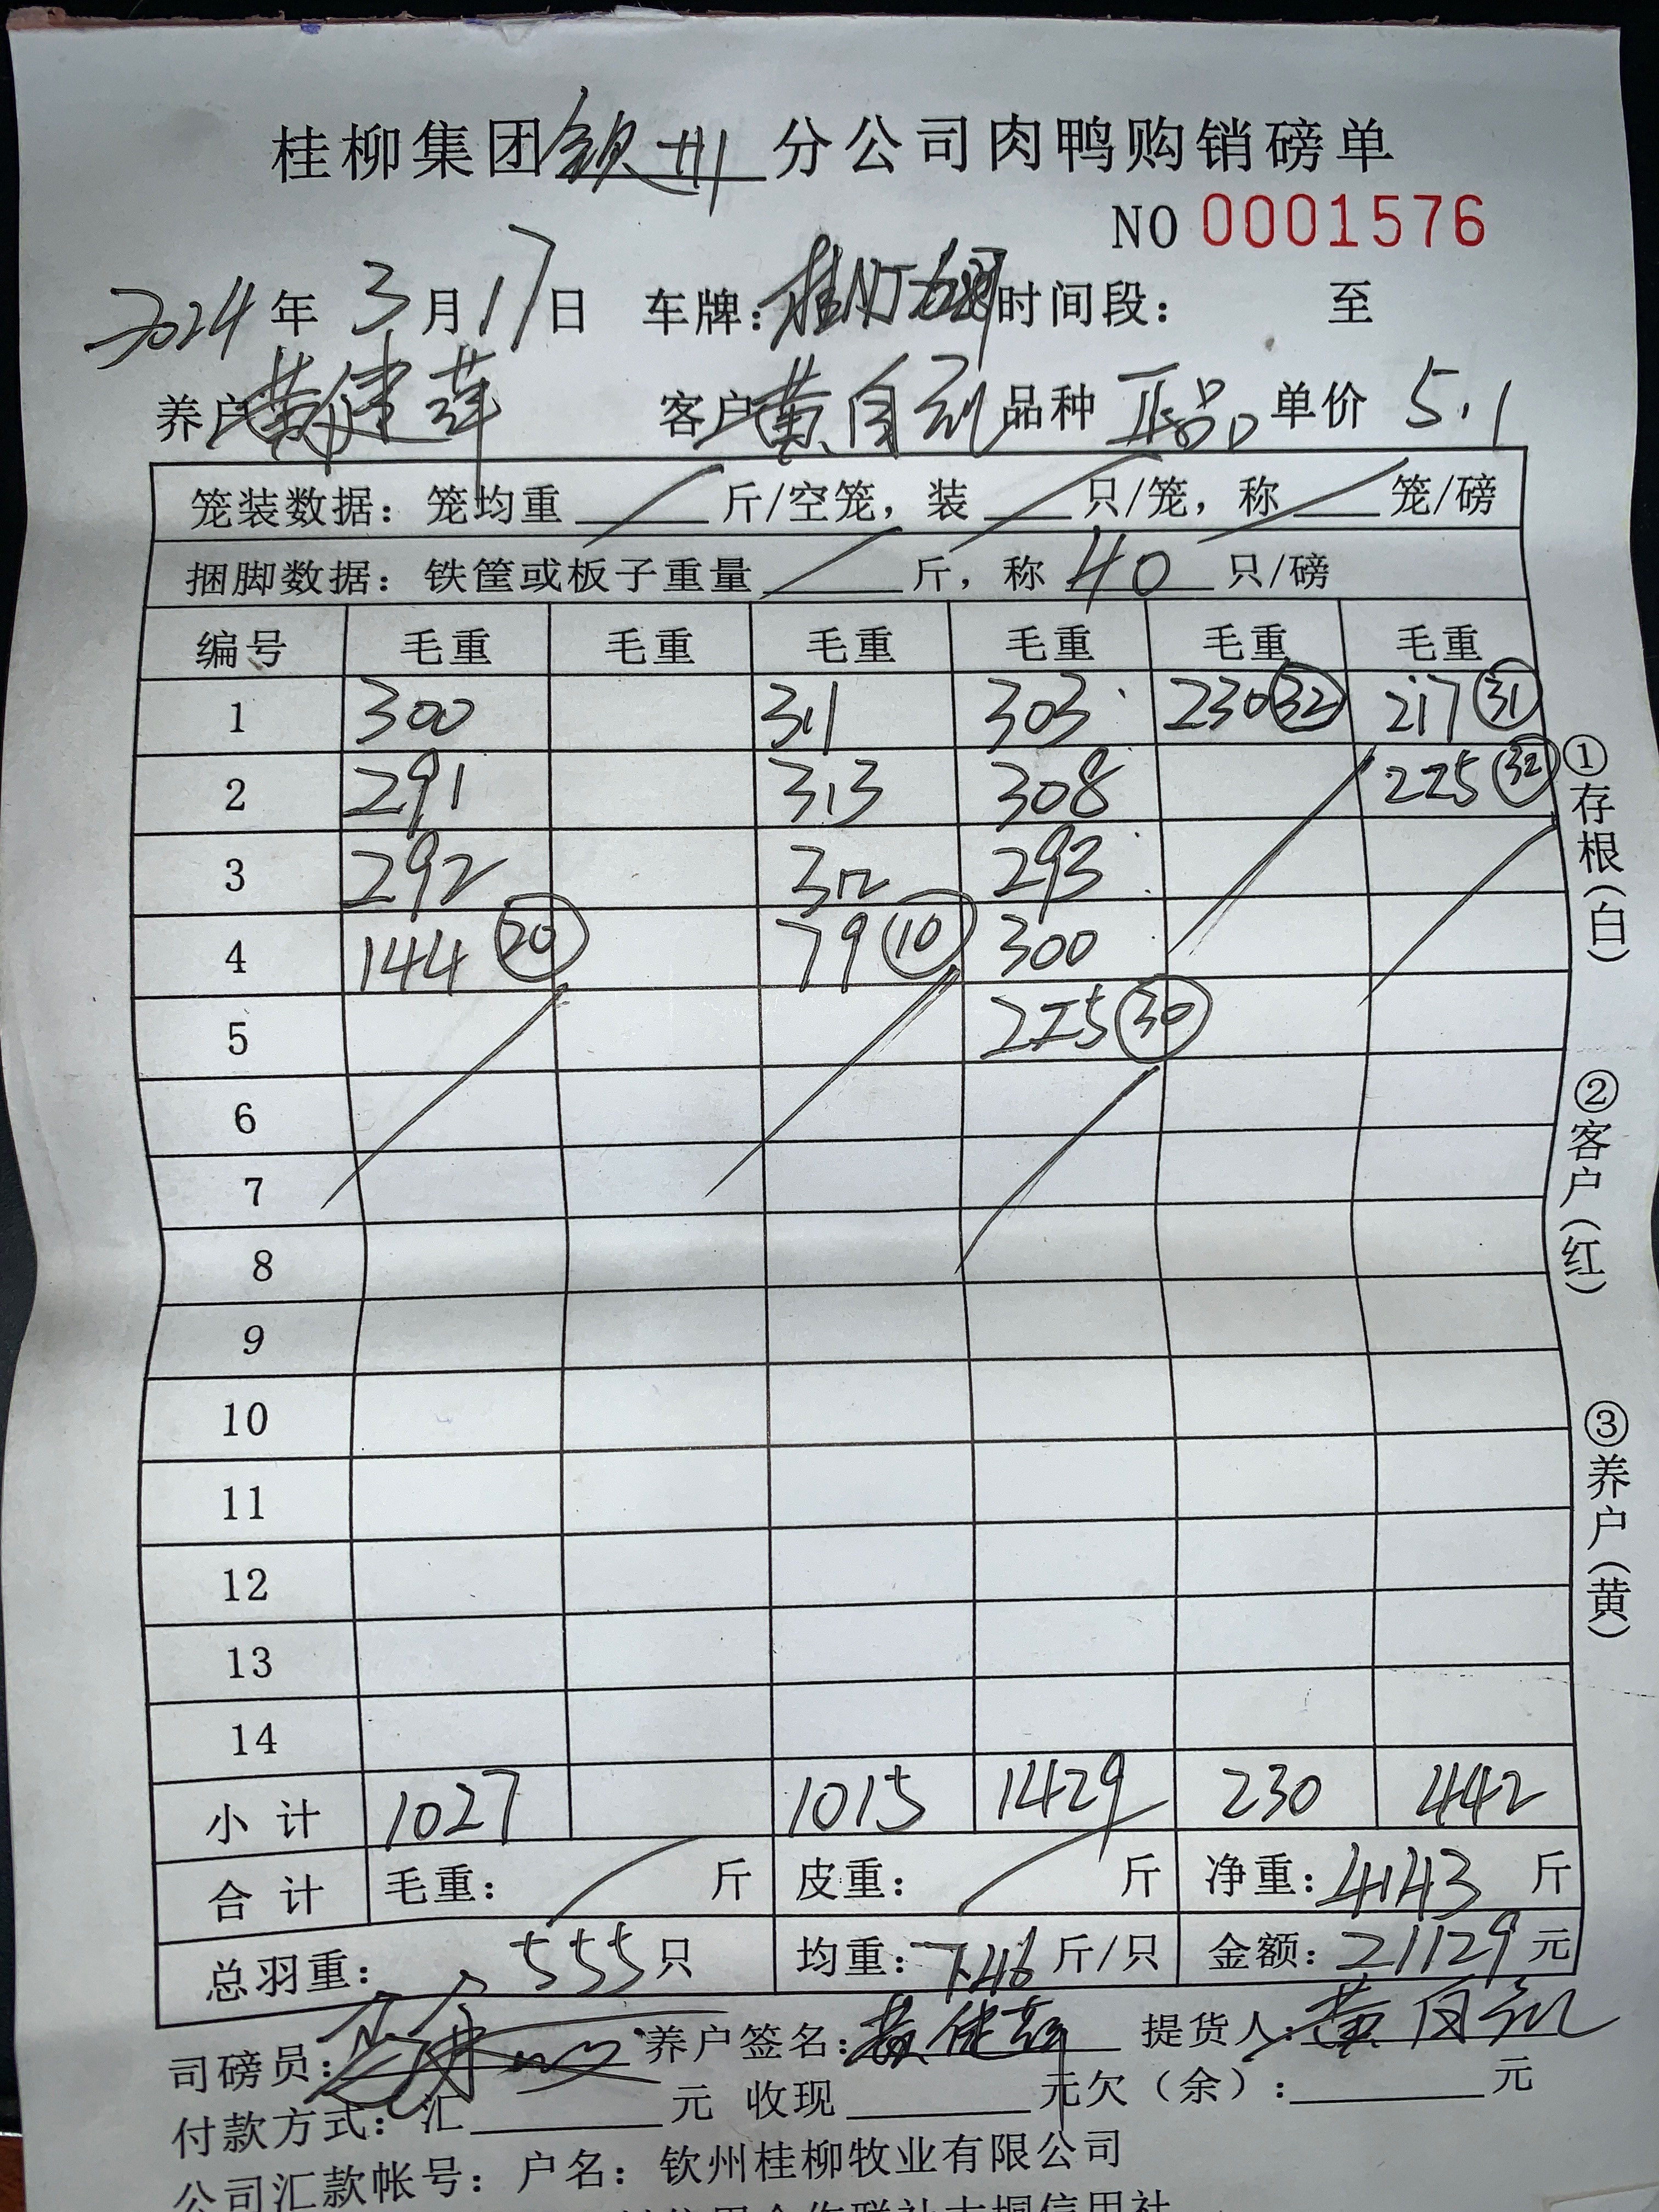 桂柳集团钦州分公司肉鸭购销磅单
NO 0001576
2024年 3月17日 车牌: 时间段: 至
养户 黄健萍 客户 黄自 品种 正品 单价 5.1
笼装数据: 笼均重 斤/空笼, 装 只/笼, 称 笼/磅
捆脚数据: 铁筐或板子重量 斤, 称 40 只/磅
编号 毛重 毛重 毛重 毛重 毛重 毛重
1 300 311 303 230 32 217 31
2 291 313 308 225 32
3 292 312 293
4 144 20 79 10 300
5 225 30
6
7
8
9
10
11
12
13
14
小计 1027 1015 1429 230 442
合计 毛重: 斤 皮重: 斤 净重: 4143 斤
总羽重: 555只 均重: 7.46 斤/只 金额: 21129 元
司磅员: 养户签名: 黄健萍 提货人: 黄自
付款方式: 汇 元 收现 元欠(余): 元
公司汇款帐号: 户名: 钦州桂柳牧业有限公司
①存根(白)
②客户(红)
③养户(黄)